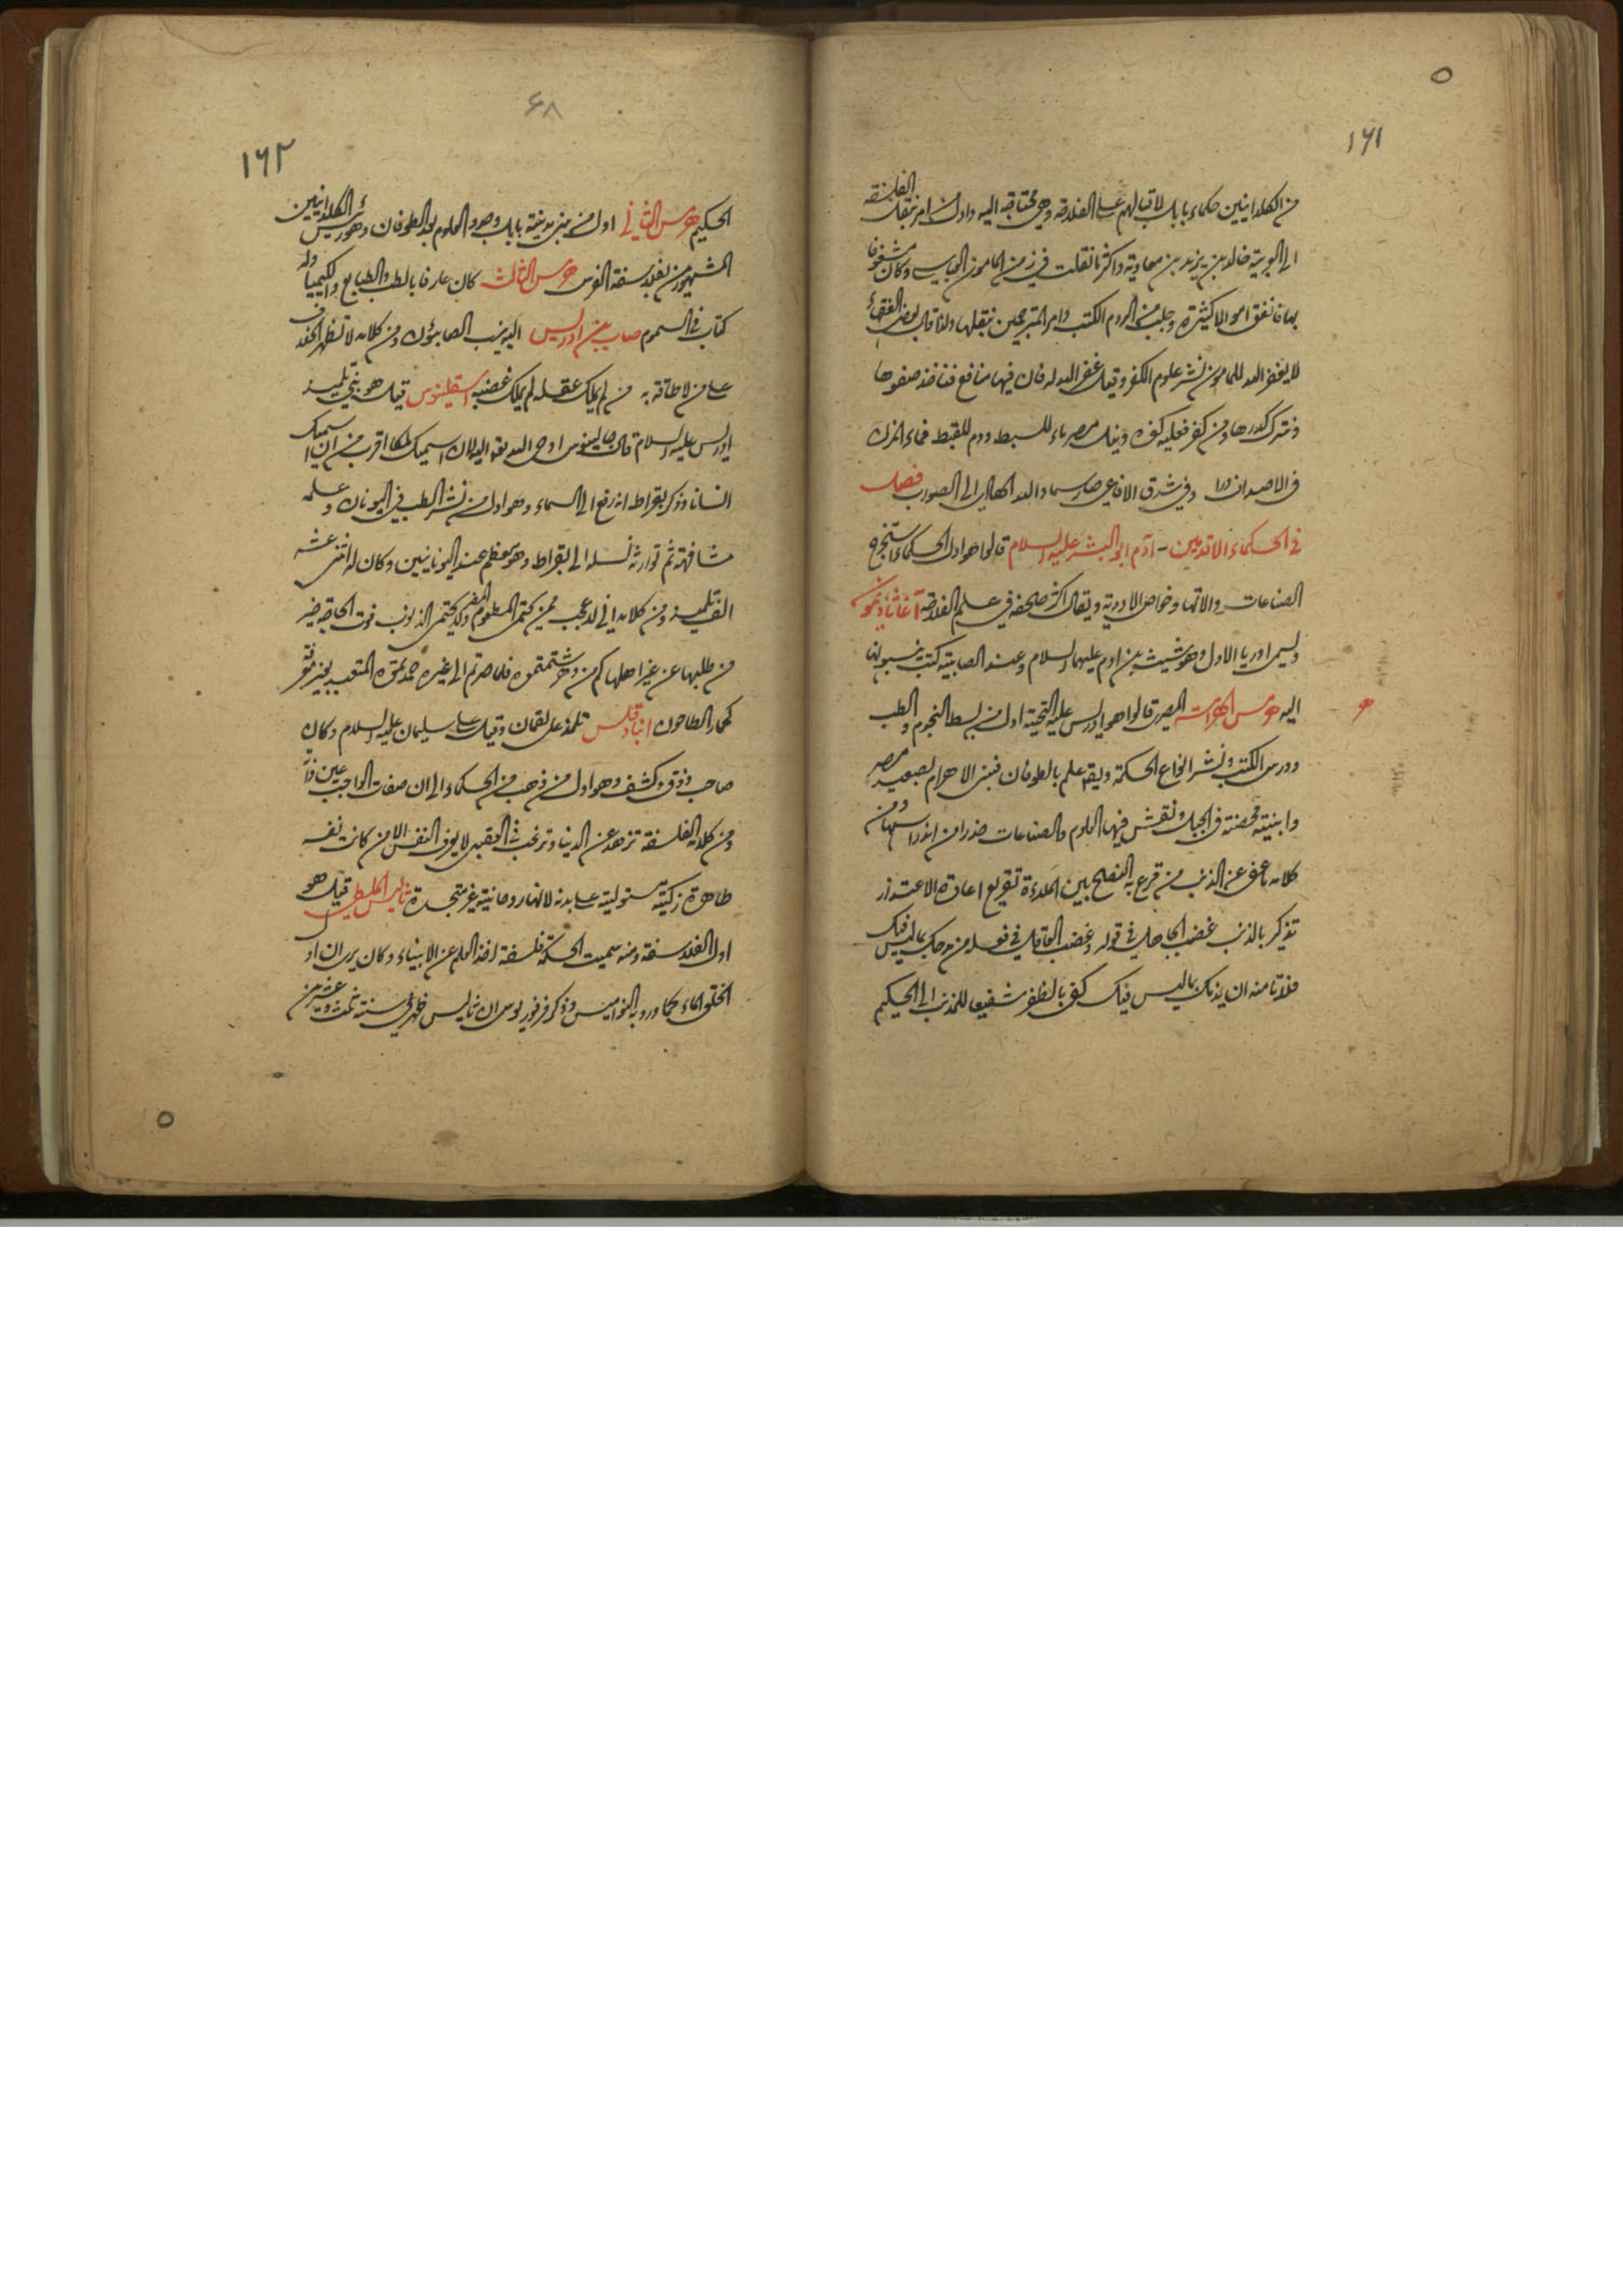 ١٦١
من الكلدانيين حكماء بابل لاقبالهم على الفلاحة وهي محتاجة اليه واول من امر بنقل الفلسفة
الى العربية خالد بن يزيد بن معاوية واكثر ما نقلت في زمن المامون العباسي وكان مشغوفا
بها فانفق اموالا كثيرة وجلب من الروم الكتب وامر المترجمين بنقلها ولذا قال بعض الفقهاء
لا يغفر الله للمامون نشر علوم الكفر وقيل غفر الله له فان فيها منافع فناخذ صفوها
ونترك كدرها ومن كفر فعليه كفره ونيل مصر ماء للسبط ودم للقبط فماء المزن
في الاصداف درا وفي شدق الافاعي صار سما والله الهادي الى الصواب فصل
في الحكماء الاقدمين - آدم ابو البشر عليه السلام قالوا هو اول الحكماء استخرج
الصناعات والاتها وخواص الادوية ويقال اكثر صحفه في علم الفلاحة آغاثاذيمون
وليس اوريا الاول وهو شيث بن ادم عليهما السلام وعند الصابية كتب ينسبونها
اليه هرمس الهرامسة المصري قالوا هو ادريس عليه التحية اول من بسط النجوم والطب
ودرس الكتب ونشر انواع الحكمة ويقال علم بالطوفان فبنى الاهرام بصعيد مصر
وابنية محصنة في الجبل ونقش فيها العلوم والصناعات حذرا من اندراسها ومن
كلامه ما عفى عن الذنب من قرع به النصح بين الملاءة تقريع اعادة الاعتذار
تذكير بالذنب غضب الجاهل في قوله وغضب العاقل في فعله من مدحك بما ليس فيك
فلا تامنه ان يذمك بما ليس فيك كفى بالظفر شفيعا للمذنب الى الحكيم
٦٨
١٦٢
الحكيم هرمس الثاني اول من بنى مدينة بابل وهو والعلوم بعد الطوفان وهو رئيس الكلدانيين
المشهور من فلاسفة الفرس هرمس الثالث كان عارفا بالطب والطبايع والكيمياء وله
كتاب في السموم صاب بن ادريس اليه ينسب الصابئون ومن كلامه لا تظهر الخلاف
على من لا طاقة به من لم يملك عقله لم يملك غضبه اسقلينوس قيل هو نبي تلميذ
ادريس عليه السلام قال جالينوس اوحى الله تعالى اليه لان اسميك ملكا اقرب من ان اسميك
انسانا وذكر بقراط انه رفع الى السماء وهو اول من نشر الطب في اليونان وعلمه
مشافهة ثم توارثه نسله الى بقراط وهو معظم عند اليونانيين وكان له اثنى عشر
الف تلميذ ومن كلامه اني لاعجب ممن يحتمي المطعوم المضر ولا يحتمي الذنوب فوت الحاجة خير
من طلبها عن غير اهلها كم من دهر شتمتموه فلما صرتم الى غيره حمدتموه المتعبد بغير معرفة
كحمار الطاحون انبادقلس تلمذ على لقمان وقيل على سليمان عليه السلام وكان
صاحب ذوق وكشف وهو اول من ذهب من الحكماء الى ان صفات الواجب عين ذاته
ومن كلامه الفلسفة تزهد عن الدنيا وترغب في العقبى لا يعرف النفس الا من كانت نفسه
طاهرة زكية مستولية على بدنه لانها روحانية غير متجسدة ثاليس الملطي قيل هو
اول الفلاسفة ومنه سميت الحكمة فلسفة اخذ العلم عن الانبياء وكان يرى ان اول
الخلق الماء كما ورد به النواميس وذكر فرفوريوس ان ثاليس ظهر في سنة ثلث وعشرين